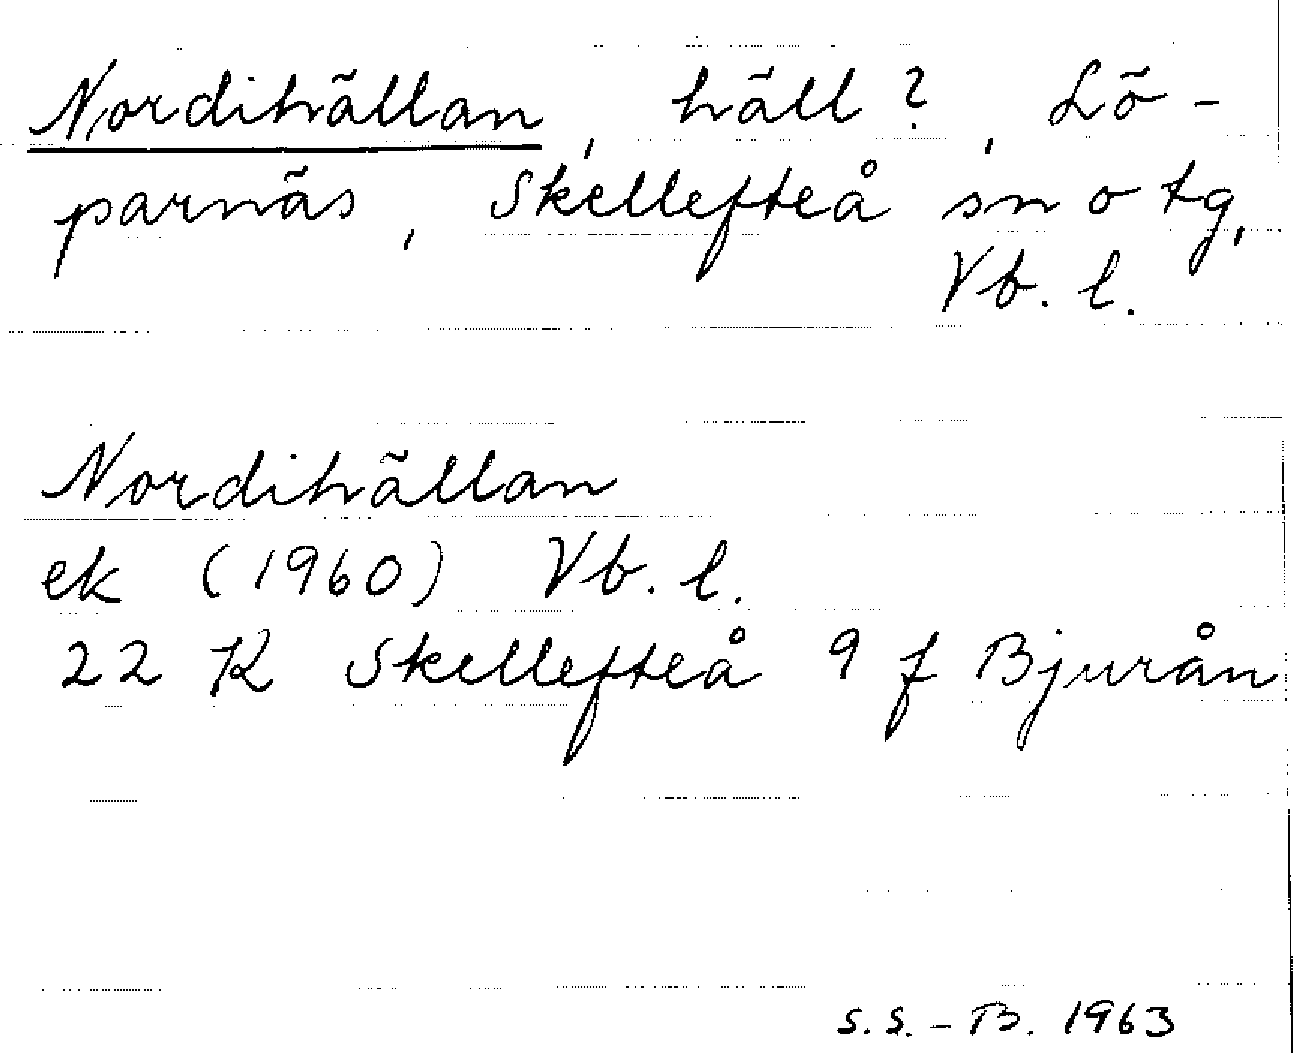 Nordihällan, häll?, Lö-
parnäs, Skellefteå sn o tg,
Vb. l.
Nordihällan
ek (1960) Vb. l.
22 K Skellefteå 9 f Bjurån
S.S.-B. 1963